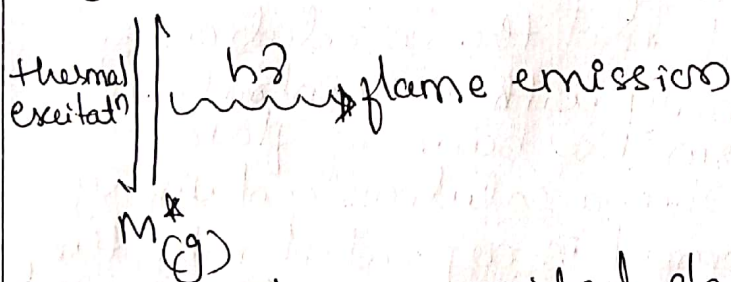 thermal
excitatⁿ
hν
flame emission
M*(g)